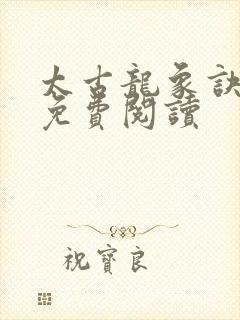 太古龍象訣
免費閱讀
祝寶良